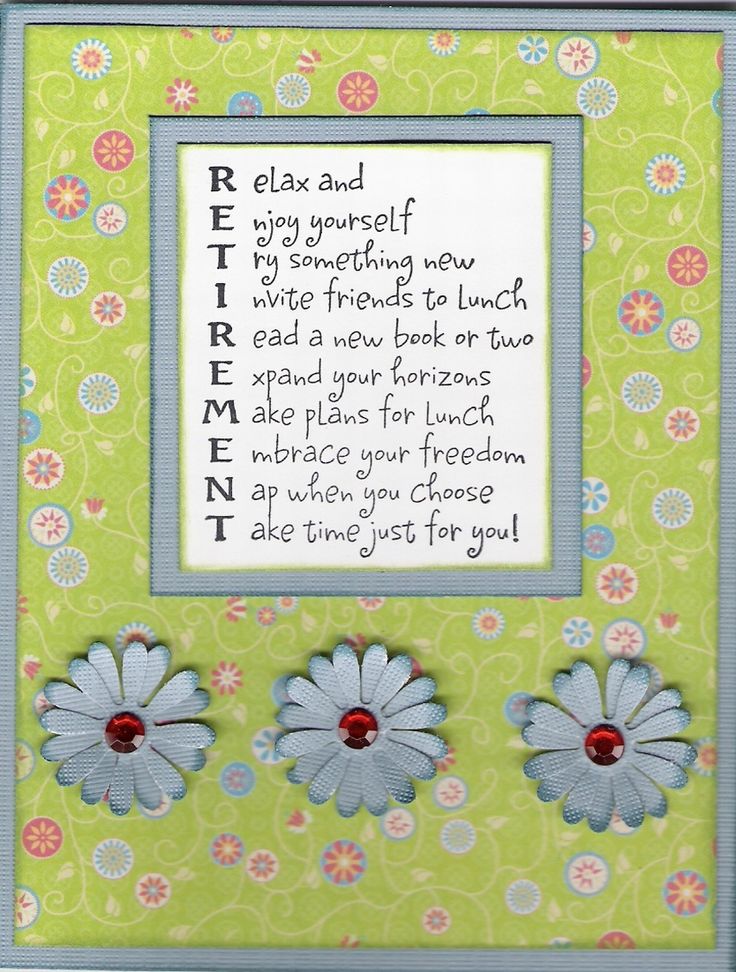 Relax and
Enjoy yourself
Try something new
Invite friends to Lunch
Read a new book or two
Expand your horizons
Make plans for Lunch
Embrace your freedom
Nap when you choose
Take time just for you!